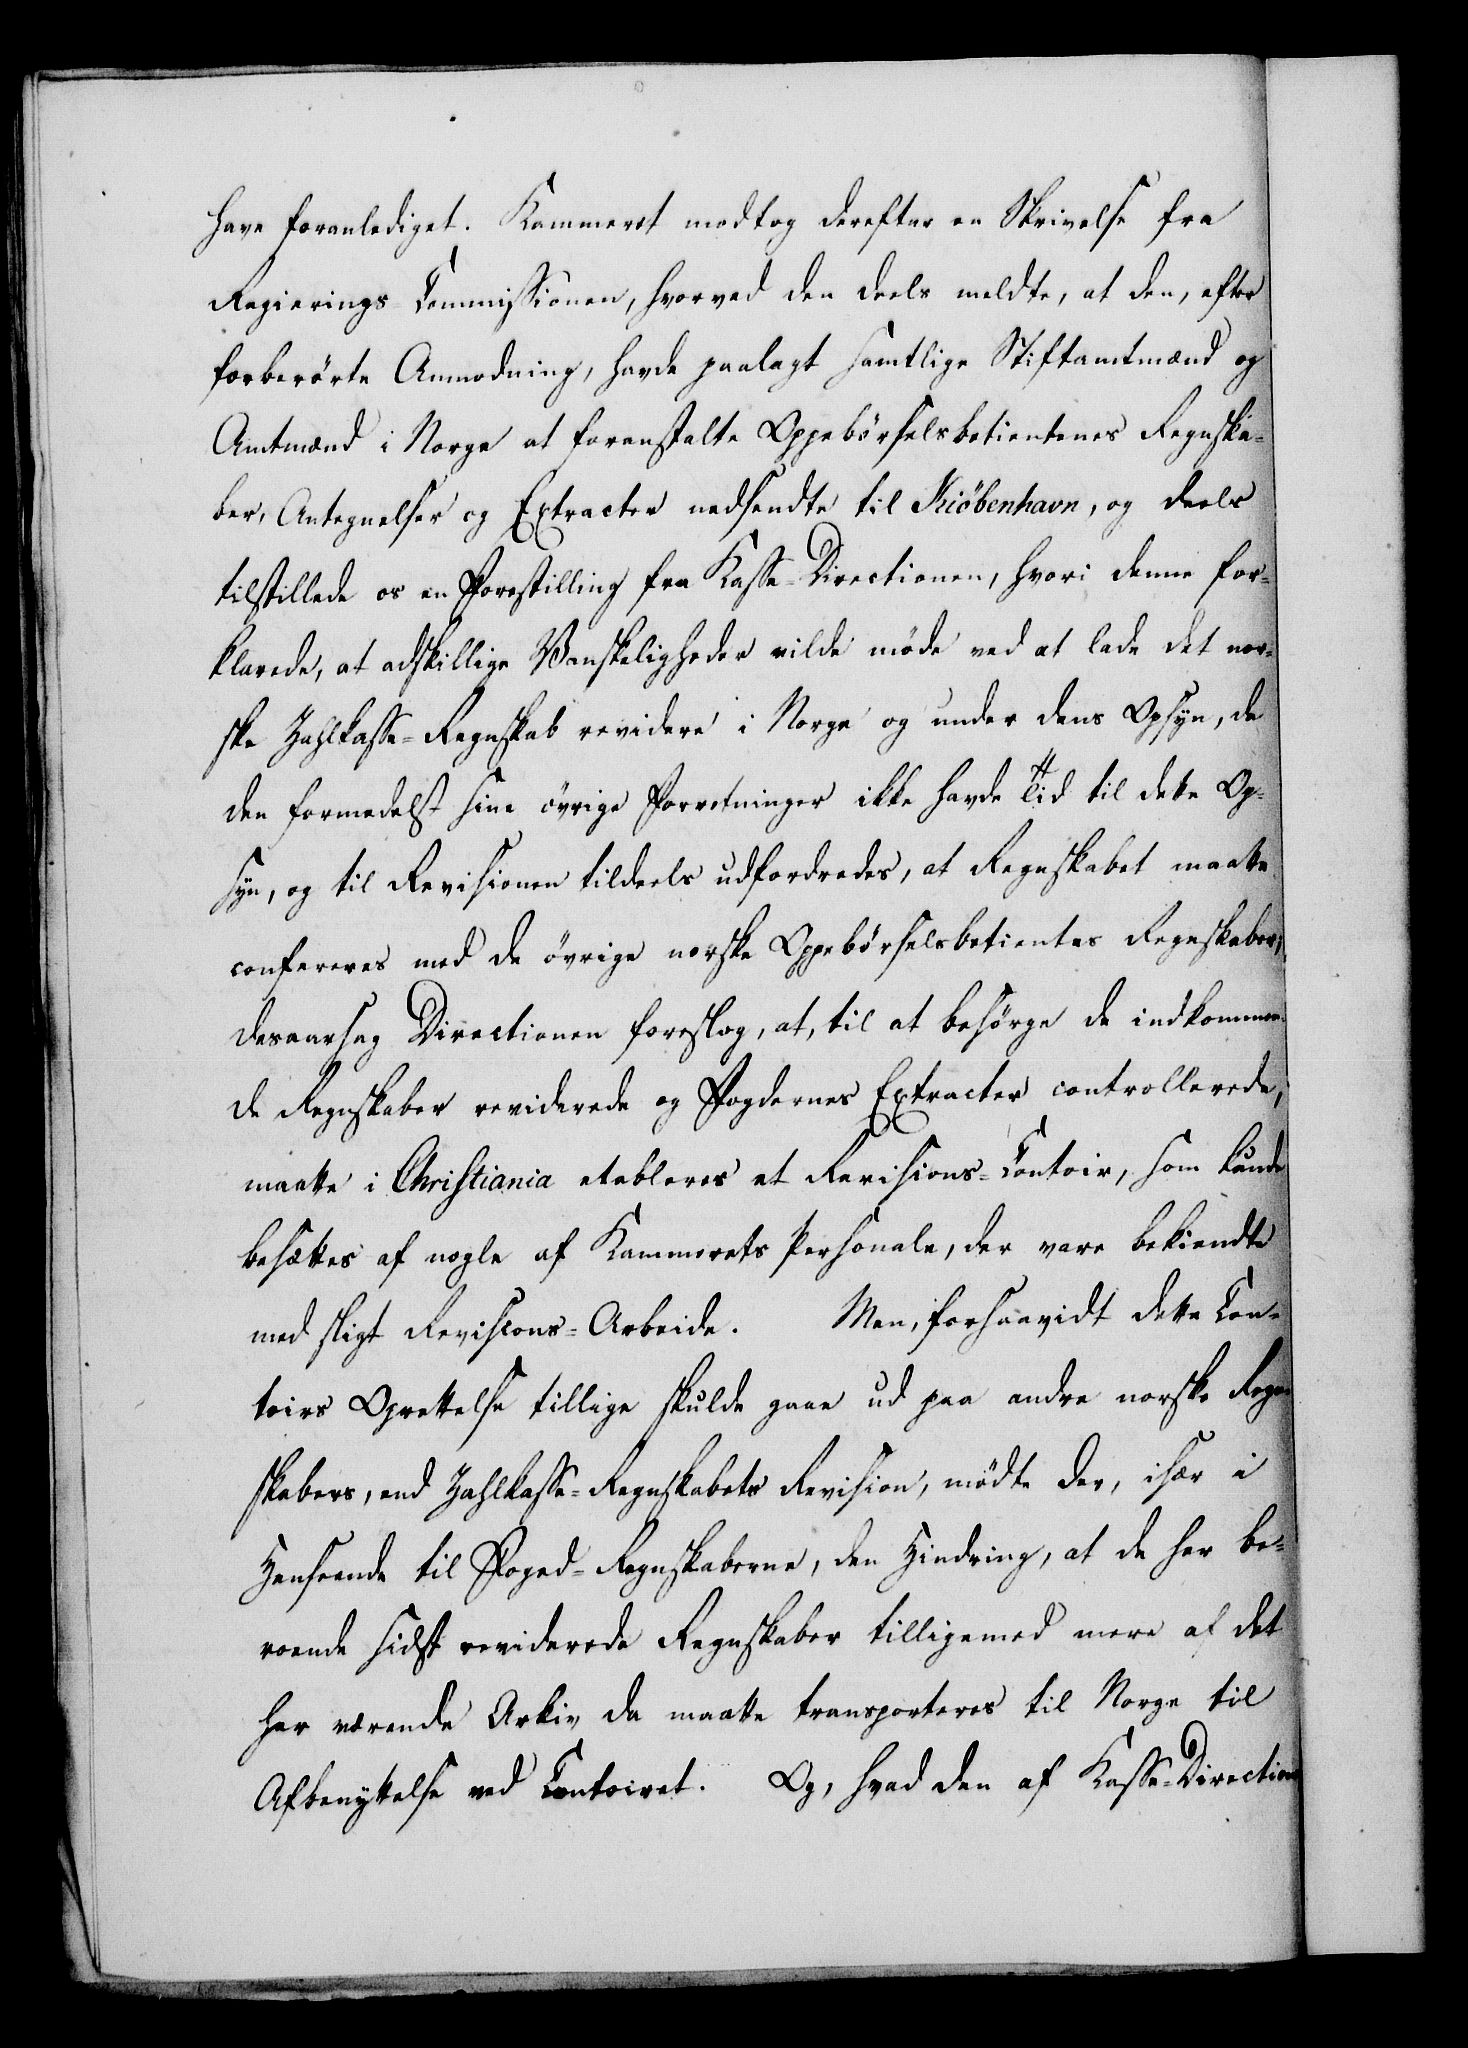 have foranlediget. Kammeret modtog derefter en Skrivelse fra
Regierings Commissionen, hvorved den deels meldte, at den, efter
forberörte Anmodning, havde paalagt samtlige Stiftamtmænd og
Amtmænd i Norge at foranstalte Oppebörselsbetientenes Regnska-
ber, Antegnelser og Extracter nedsendte til Kiöbenhavn, og deels
tilstillede os en Forestilling fra Kasse-Directionen, hvori denne for-
klarede, at adskillige Vanskeligheder vilde möde ved at lade det nor-
ske Zahlkasse-Regnskab revidere i Norge og under dens Opsyn, da
den formedelst sine övrige Forretninger ikke havde Tid til dette Op-
syn, og til Revisionen tildeels udfordredes, at Regnskabet maatte
confereres med de övrige norske Oppebörselsbetientes Regnskaber;
desaarsag Directionen foreslog, at, til at besörge de indkommen-
de Regnskaber reviderede og Fogdernes Extracter controllerede,
maatte i Christiania etableres et Revisions-Contoir, som kunde
besættes af nogle af Kammerets Personale, der vare bekiendte
med sligt Revisions-Arbeide. Men, forsaavidt dette Con-
toirs Oprettelse tillige skulde gaae ud paa andre norske Regn-
skabers, end Zahlkasse-Regnskabets Revision, mödte der, især i
Henseende til Foged-Regnskaberne, den Hindring, at de her be-
roende sidst reviderede Regnskaber tilligemed mere af det
her værende Arkiv da maatte transporteres til Norge til
Afbenyttelse ved Contoiret. Og, hvad den af Kasse-Direction